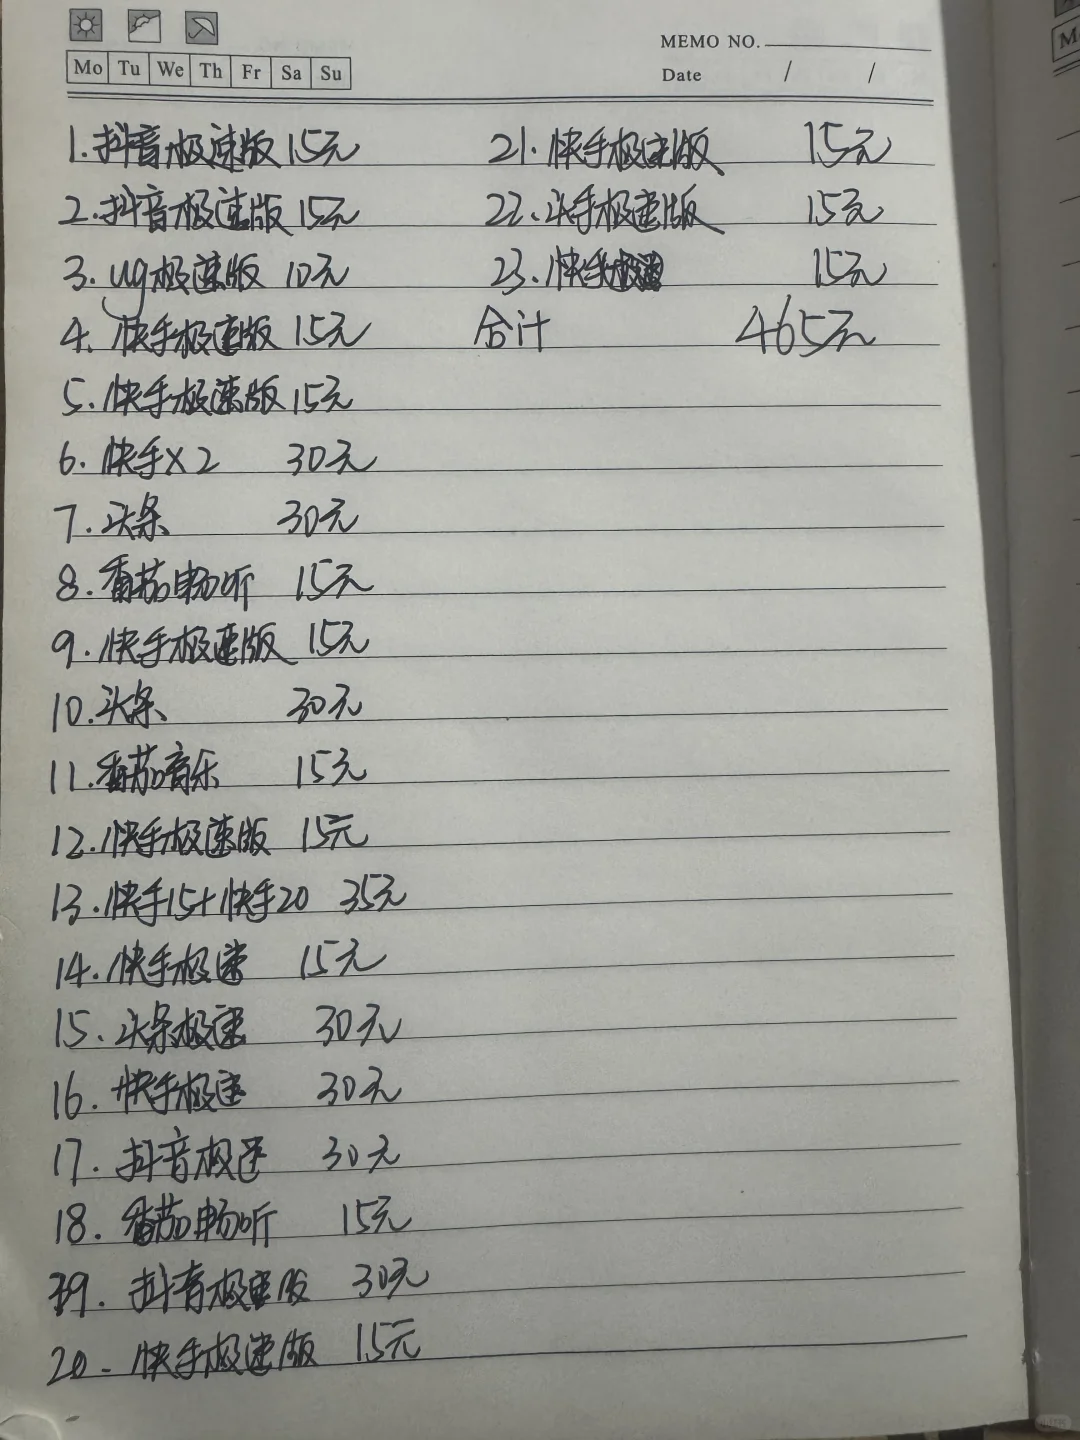 Mo Tu We Th Fr Sa Su
MEMO NO.
Date / /
1.抖音极速版 15元
2.抖音极速版 15元
3.ug极速版 10元
4.快手极速版 15元
5.快手极速版 15元
6.快手×2 30元
7.头条 30元
8.番茄畅听 15元
9.快手极速版 15元
10.头条 30元
11.番茄音乐 15元
12.快手极速版 15元
13.快手15+快手20 35元
14.快手极速 15元
15.头条极速 30元
16.快手极速 30元
17.抖音极速 30元
18.番茄畅听 15元
19.抖音极速版 30元
20.快手极速版 15元
21.快手极速版 15元
22.头手极速版 15元
23.快手极速 15元
合计 465元